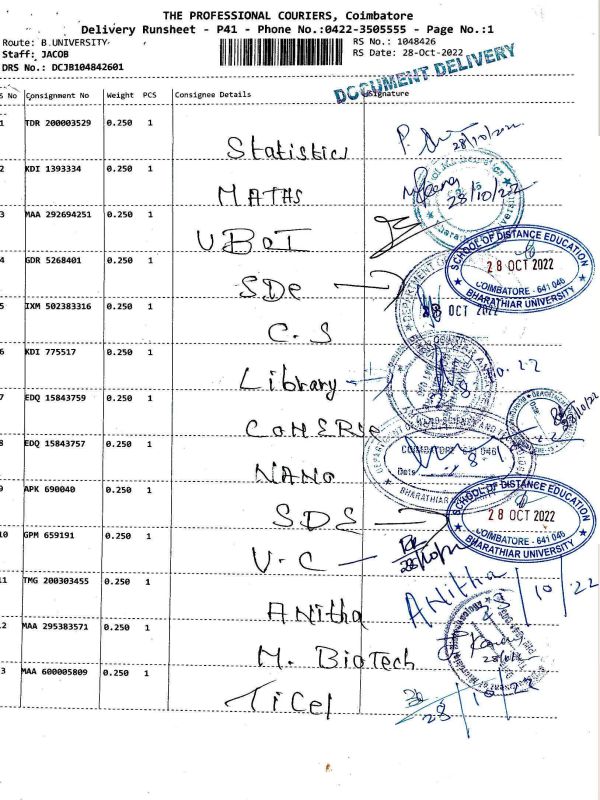 THE PROFESSIONAL COURIERS, Coimbatore
Delivery Runsheet - P41 - Phone No.:0422-3505555 - Page No.:1
Route: B.UNIVERSITY
RS No.: 1048426
Staff: JACOB
RS Date: 28-Oct-2022
DRS No.: DCJB104842601
DOCUMENT DELIVERY
S No Consignment No Weight PCS Consignee Details Signature
1 TDR 200003529 0.250 1
Statistics 28/10/22
2 KDI 1393334 0.250 1
MATHS 28/10/22
3 MAA 292694251 0.250 1
UBOT
SCHOOL OF DISTANCE EDUCATION
28 OCT 2022
COIMBATORE - 641 046
BHARATHIAR UNIVERSITY
4 GDR 5268401 0.250 1
SDe
5 IXM 502383316 0.250 1
28 OCT 2022
C.S
6 KDI 775517 0.250 1
Library
7 EDQ 15843759 0.250 1
COMERSe
8 EDQ 15843757 0.250 1
COIMBATORE 641 046
Date
BHARATHIAR
NANO
9 APK 690040 0.250 1
SCHOOL OF DISTANCE EDUCATION
28 OCT 2022
COIMBATORE - 641 046
BHARATHIAR UNIVERSITY
SDE
10 GPM 659191 0.250 1
V-C 28/10/22
11 TMG 200303455 0.250 1
ANitha ANitha /10/22
2 MAA 295383571 0.250 1
M. BioTech
3 MAA 600005809 0.250 1
TiCel 28/10/22